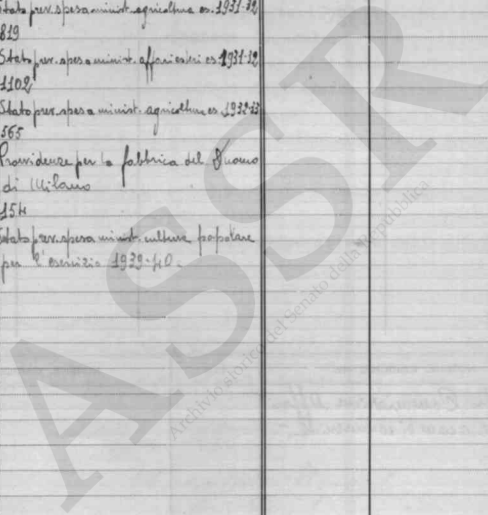 Stato prev. spesa minist. agricoltura es. 1931-32
819
Stato prev. spesa minist. affari esteri es. 1931-32
1102
Stato prev. spesa minist. agricoltura es. 1932-33
565
Provvidenze per la fabbrica del Duomo
di Milano
154
Stato prev. spesa minist. culture popolare
per l'esercizio 1939-40.
ASSR
Archivio storico del Senato della Repubblica